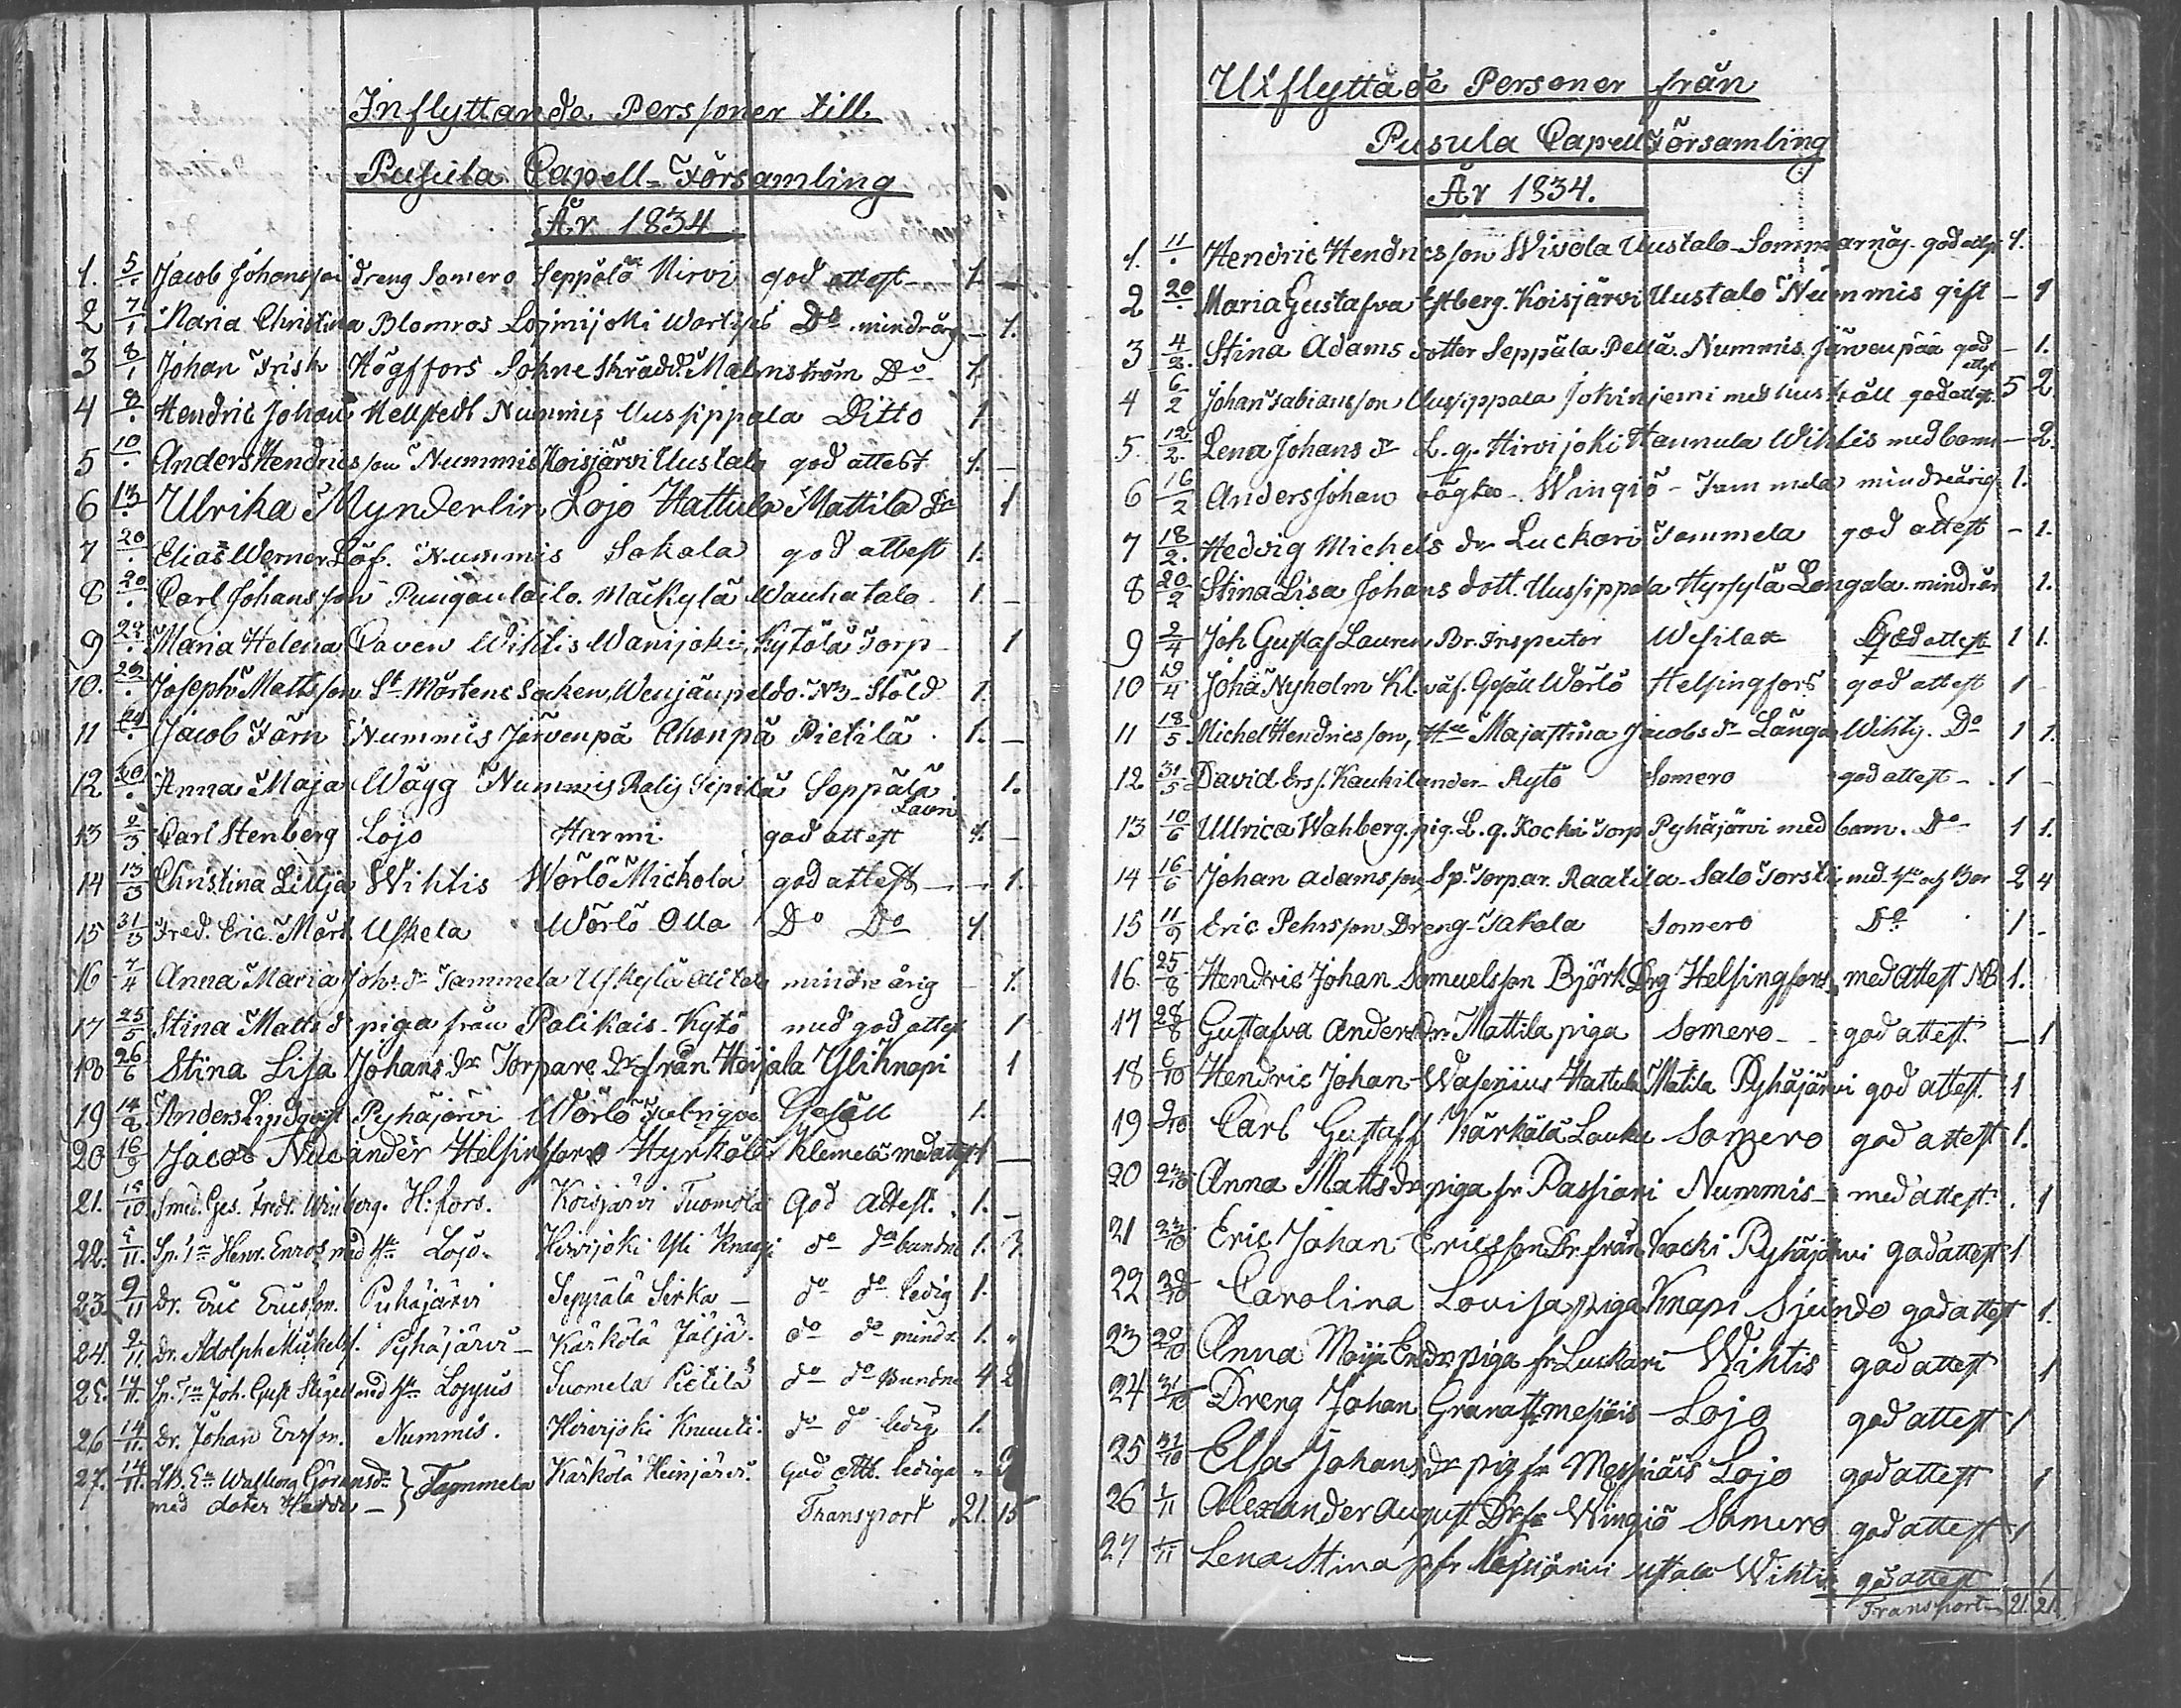 Inflyttande Personer till
Pusula Capell-Församling
År 1834
1. 5/1 Jacob Johansson dreng Somero Seppälä Kirvi god attest 1. –
2 7/1 Maria Christina Blomros Lojmijoki D:o mindreårig – 1.
3 8/1 Johan Frisk Högffors Sohne Skradd. Malmström D:o 1.
4 9/. Hendric Johan Hellstedt Nummis Uusippala Ditto 1
5 10/. Anders Hendricsson Nummis Koisjärvi Uustalo god attest 1. –
6 13/. Ulrika Mynderlin Lojo Hattula Mattila D:o 1
7 20/. Elias Werner Löf. Nummis Sokala god attest 1.
8 20/. Carl Johansson Mäckylä Wanhatalo. 1. –
9 Maria Helena Wihtis Wanjoki, Kytölä Torp – 1
10. Joseph Mattsson S:t Mårtens Socken, N:3 – Stöld 1.
11 Jacob Färn Nummis Järvenpä Ahonpä Pietilä . 1. –
12 Anna Maja Wägg Nummis Sipilä Seppälä 1.
Lauri
13 2/3 Carl Stenberg Lojo Harmi god attest 1. –
14 13/3 Christina Lillja Wihtis Wörlö Mickola god attest – – 1.
15 31/3 Fred. Eric Mört Uskela Wörlö Olla D:o D:o 1.
16 7/4 Anna Maria Johs. dr Tammela Uskylä mindre årig – 1.
17 25/5 Stina Matts d piga från Palikais – Kytö med god attest 1
18 26/6 Stina Lisa Johans dr Torpare dr från Hirjala Yliknapi 1
19 14/8 Anders Lindqvist Pyhäjärvi Wörlö Fabrique Gesäll 1.
20 16/9 Jacob Nucander Helsingfors Hyrkölä Klemelä med attest 1 –
21. 15/10 Smed. Ges. Fredr. Winberg. H:fors. Koisjärvi Tuomola God Attest. 1. –
22. 5/11. Sp. T:re Henr. Enros med H:u Lojo. Hirvijoki Yli Knaapi d:o d:o bundne 1. 3.
23. 9/11 Dr. Eric Ericsson. Pyhäjärvi Seppälä Sirka – d:o d:o ledig 1.
24. 9/11. Dr. Adolph Mickelss. Pyhäjärvi – Kärkölä Jäljä. d:o d:o mindr. 1. "
25. 14/11. Sp. T:re Joh. Gust Stigell med H:u Lojjus Suomela Pietilä d:o d:o Bundne 4 2
26 14/11. Dr. Johan Ersson. Nummis. Hirvijoki Knuuti. d:o d:o ledig 1.
27. 14/11. E:a Walborg Göransdr Kärkölä Heinjärvi. god Att. lediga " 2
med doter Hedda – } Tammela Transport 21. 15

Utflyttade Personer från
Pusula Capell Församling
År 1834.
1. 11/. Hendric Hendricsson Wivola Uustalo – Sommarnäs. god attest 1.
2 20/. Maria Gustafva Estberg. Koisjärvi Uustalo Nummis gift – 1
3 4/2. Stina Adams dotter Seppälä Pellä. Nummis. Järvenpää god – 1.
attest
4 6/2 Johan Fabiansson Uusippala Jokiniemi med hushåll god attest 5 2
5. 12/2. Lena Johans dr L. q. Hirvijoki Hannula Wihtis med barn – 2.
6 16/2 Anders Johan Wingiö – Tammela mindreårig 1.
7 18/2. Hedvig Michels dr Luckari Tammela god attest – 1.
8 20/2 Stina Lisa Johans dott. Uusippala Hyrsylä Längala. mindrår 1.
9 2/4 Joh Gustaf Lauren Br. Inspector Wesilax God attest 1 1.
10 19/4 Joha Nyholm Kl. väf. Gesäll Wörlö Helsingfors god attest 1 –
11 18/5 Michel Hendricsson, H:u Maja Stina Jacobs dr Länga Wihtis. D:o 1 1.
12 31/5 David Erss. Kauhilander – Kytö Somero god attest – 1 –
13 10/6 Ullrica Wahlberg. pig. L. q. Kocki Torp Pyhäjärvi med barn. D:o 1 1.
14 16/6 Johan Adamsson Sp. Torpar. Raatila – Salo Torsti med H:u och Bar 2 4
15 11/9 Eric Pehrsson Dreng – Takala Somero D:o 1 –
16. 25/8 Hendric Johan Samuelsson Björk Drg Helsingfors, med attest NB 1.
17 28/8 Gustafva Anders dr. Mattila piga Somero – – god attest. – 1
18 6/10 Hendric Johan Wasenius Hattula Matila Pyhäjärvi god attest. 1
19 9/10 Carl Gustaff Kärkölä Lauku Somero god attest 1.
20 Anna Matts dr piga fr Passiari Nummis – med attest . 1
21 Eric Johan Ericsson Dr. från Kocki Pyhäjärvi god attest 1
22 Carolina Lovisa piga Knapi Sjundo god attest 1.
23 Anna Maja piga fr Luckari Wihtis god attest 1
24 31/10 Dreng Johan Granatt Lojo god attest 1
25 31/10 Elsa Johans dr pig fr Lojo god attest 1
26 1/11 Alexander August Dr fr Wingiö Somero god attest 1
27 1/11 Lena Stina p fr Wihtis god attest 1
Transport 21. 21.